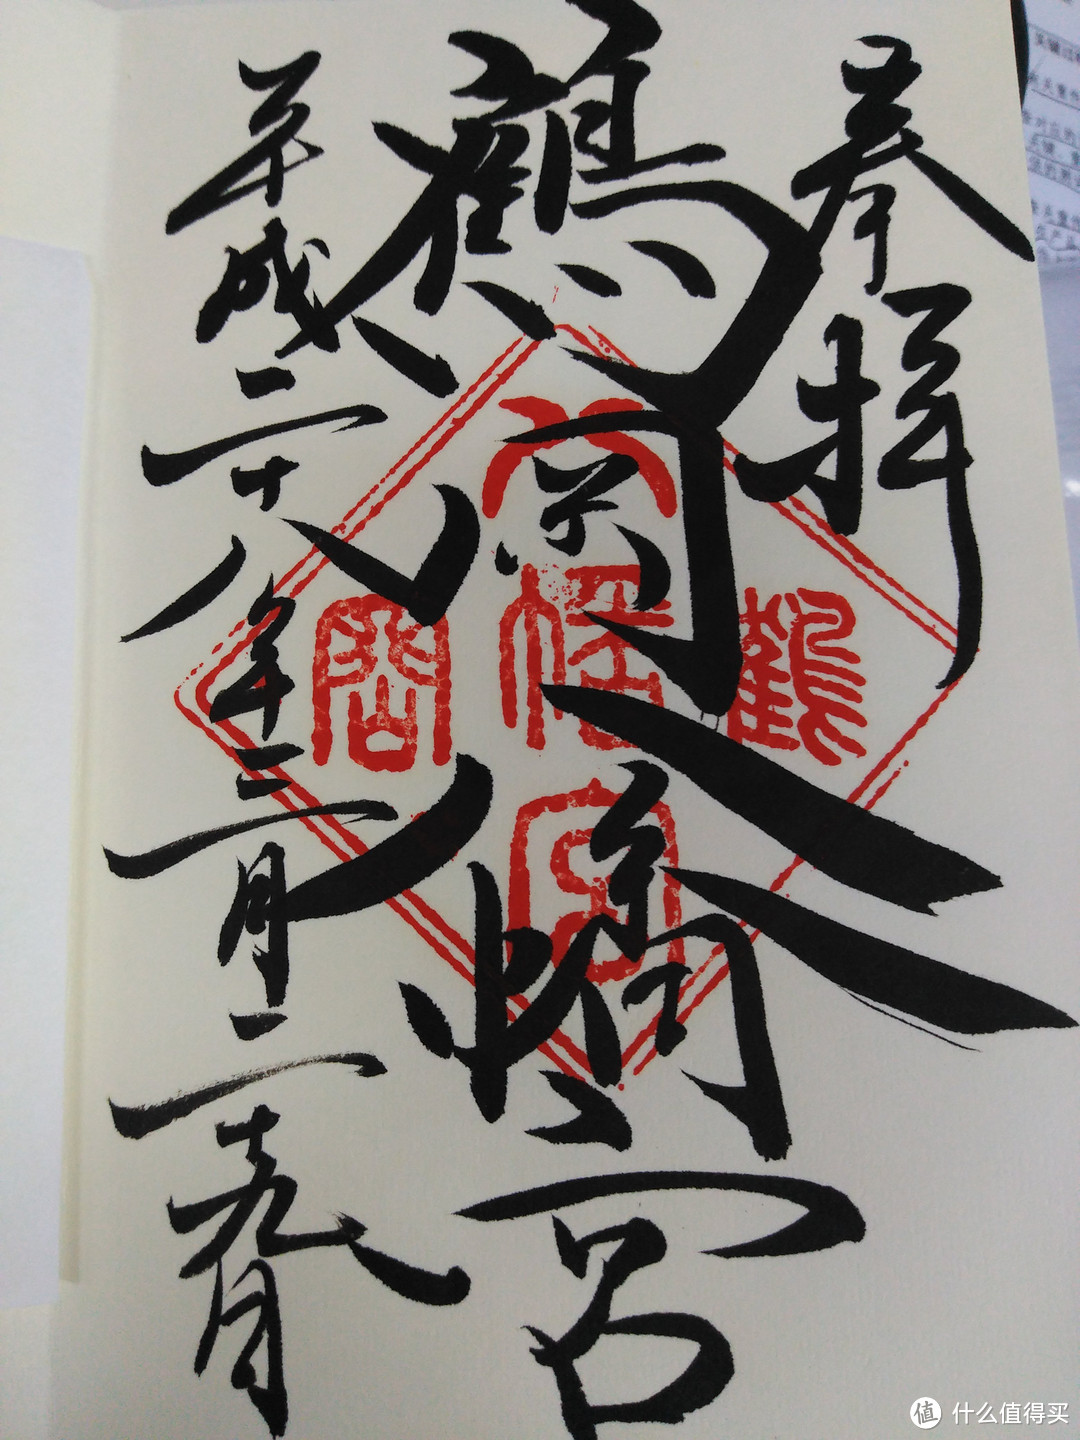 奉拝
鶴岡八幡宮
平成二十八年二月二十九日
鶴岡八幡宮
值 什么值得买